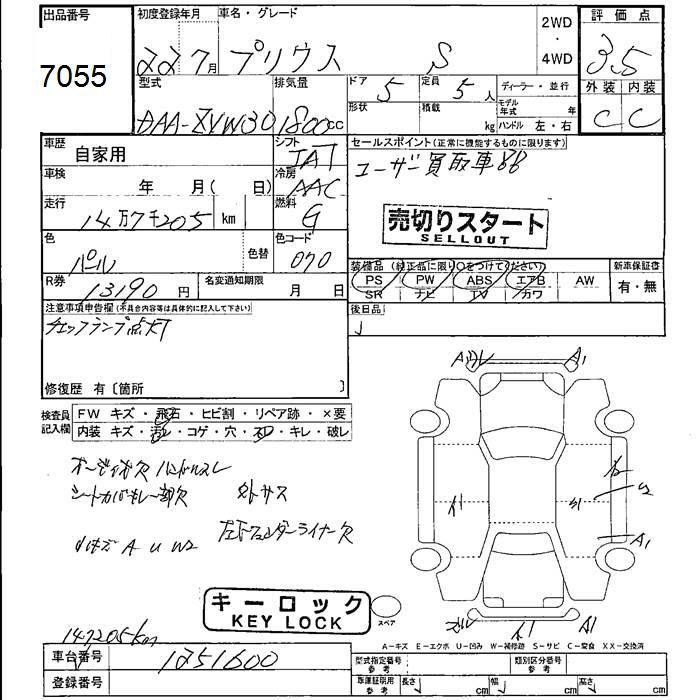 出品番号
7055
初度登録年月
22 7月
車名・グレード
プリウス S
2WD
・
4WD
評価点
3.5
外装 内装
C C
型式
DAA-ZVW30
排気量
1800cc
ドア 5
形状
定員 5人
積載 kg
ディーラー・並行
モデル年式 年
ハンドル 左・右
車歴
自家用
シフト
IAT
車検
年 月( 日)
冷房
AAC
走行
14万7千205 km
燃料
G
色
パール
色替
色コード
070
R券
13190円
名変通知期限
月 日
セールスポイント(正常に機能するものに限ります)
ユーザー買取車
売切りスタート
SELLOUT
装備品(純正品に限り○をつけてください)
PS PW ABS エアB AW
SR ナビ TV カワ
新車保証書
有・無
後日品
注意事項申告欄(不具合内容等は具体的に記入して下さい)
チェックランプ点灯
修復歴 有〔箇所 〕
検査員記入欄
FW キズ・飛石・ヒビ割・リペア跡・×要
内装 キズ・汚レ・コゲ・穴・スレ・キレ・破レ
オーディオ欠 ハンドルスレ
シートカバーキレ一部欠
外サス
左下フェンダーライナー欠
A U W2
A1
A1
A1
キーロック
KEY LOCK
スペア
147205km
A-キズ E-エクボ U-凹み W-補修跡 S-サビ C-腐食 XX-交換済
車台番号
1251600
登録番号
型式指定番号
参考
類別区分番号
参考
車庫証明用
参考
長さ cm
幅 cm
高さ cm